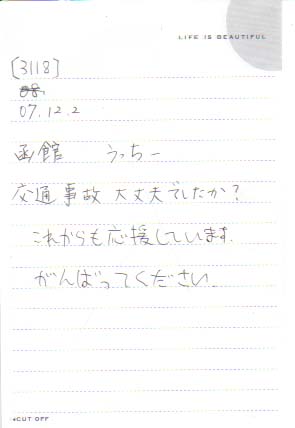 LIFE IS BEAUTIFUL
[3118]
07.12.2
函館 うっちー
交通事故 大丈夫でしたか?
これからも応援しています.
がんばってください.
CUT OFF